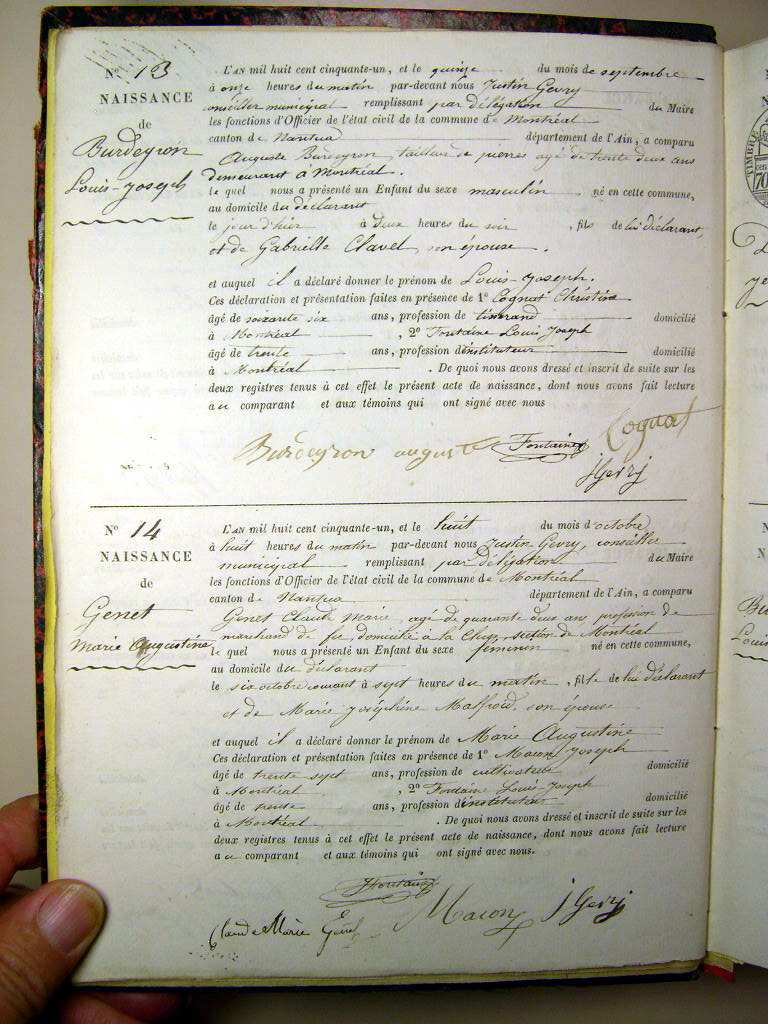 N° 13
NAISSANCE
de
Burdeyron
Louis-Joseph
L'AN mil huit cent cinquante-un, et le quinze du mois de septembre
à onze heures du matin par-devant nous Justin Gevry
conseiller municipal remplissant par délégation du Maire
les fonctions d'Officier de l'état civil de la commune de Montréal
canton de Nantua département de l'Ain, a comparu
Auguste Burdeyron, tailleur de pierres agé de trente deux ans
demeurant à Montréal.
le quel nous a présenté un Enfant du sexe masculin né en cette commune,
au domicile du déclarant
le jour d'hier à deux heures du soir, fils de lui déclarant,
et de Gabrielle Clavel, son épouse.
et auquel il a déclaré donner le prénom de Louis-Joseph.
Ces déclaration et présentation faites en présence de 1° Cognat Christin
âgé de soixante six ans, profession de tisserand domicilié
à Montréal, 2° Fontaine Louis Joseph
âgé de trente ans, profession d'instituteur domicilié
à Montréal. De quoi nous avons dressé et inscrit de suite sur les
deux registres tenus à cet effet le présent acte de naissance, dont nous avons fait lecture
au comparant et aux témoins qui ont signé avec nous
Burdeyron auguste Fontaine Cognat
J Gevry
N° 14
NAISSANCE
de
Genet
Marie Augustine
L'AN mil huit cent cinquante-un, et le huit du mois d'octobre
à huit heures du matin par-devant nous Justin Gevry, conseiller
municipal remplissant par délégation du Maire
les fonctions d'Officier de l'état civil de la commune de Montréal
canton de Nantua département de l'Ain, a comparu
Genet Claude Marie, agé de quarante deux ans profession de
marchand de fer, domicilié à la section de Montréal
le quel nous a présenté un Enfant du sexe féminin né en cette commune,
au domicile du déclarant
le six octobre courant à sept heures du matin, fille de lui déclarant
et de Marie Joséphine Malfroid, son épouse
et auquel il a déclaré donner le prénom de Marie Augustine
Ces déclaration et présentation faites en présence de 1° Macon Joseph
âgé de trente sept ans, profession de cultivateur domicilié
à Montréal, 2° Fontaine Louis-Joseph
âgé de trente ans, profession d'instituteur domicilié
à Montréal. De quoi nous avons dressé et inscrit de suite sur les
deux registres tenus à cet effet le présent acte de naissance, dont nous avons fait lecture
au comparant et aux témoins qui ont signé avec nous.
Fontaine
Claude Marie Genet Macon J Gevry
TIMBRE
70